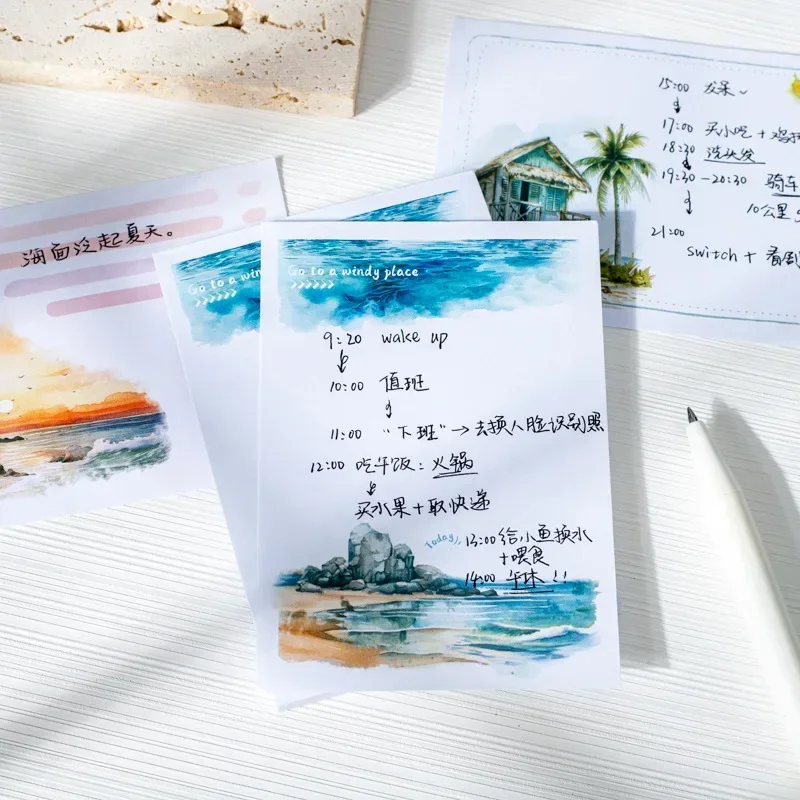 海面泛起夏天。
Go to a win
Go to a windy place
9:20 wake up
10:00 值班
11:00 "下班"→去换人脸识别照
12:00 吃午饭：火锅
买水果+取快递
Today
13:00 给小鱼换水
+喂食
14:00 午休 !!
15:00 发呆~
17:00 买小吃+鸡排
18:30 洗头发
19:30-20:30 骑车
10公里
21:00
switch + 看剧